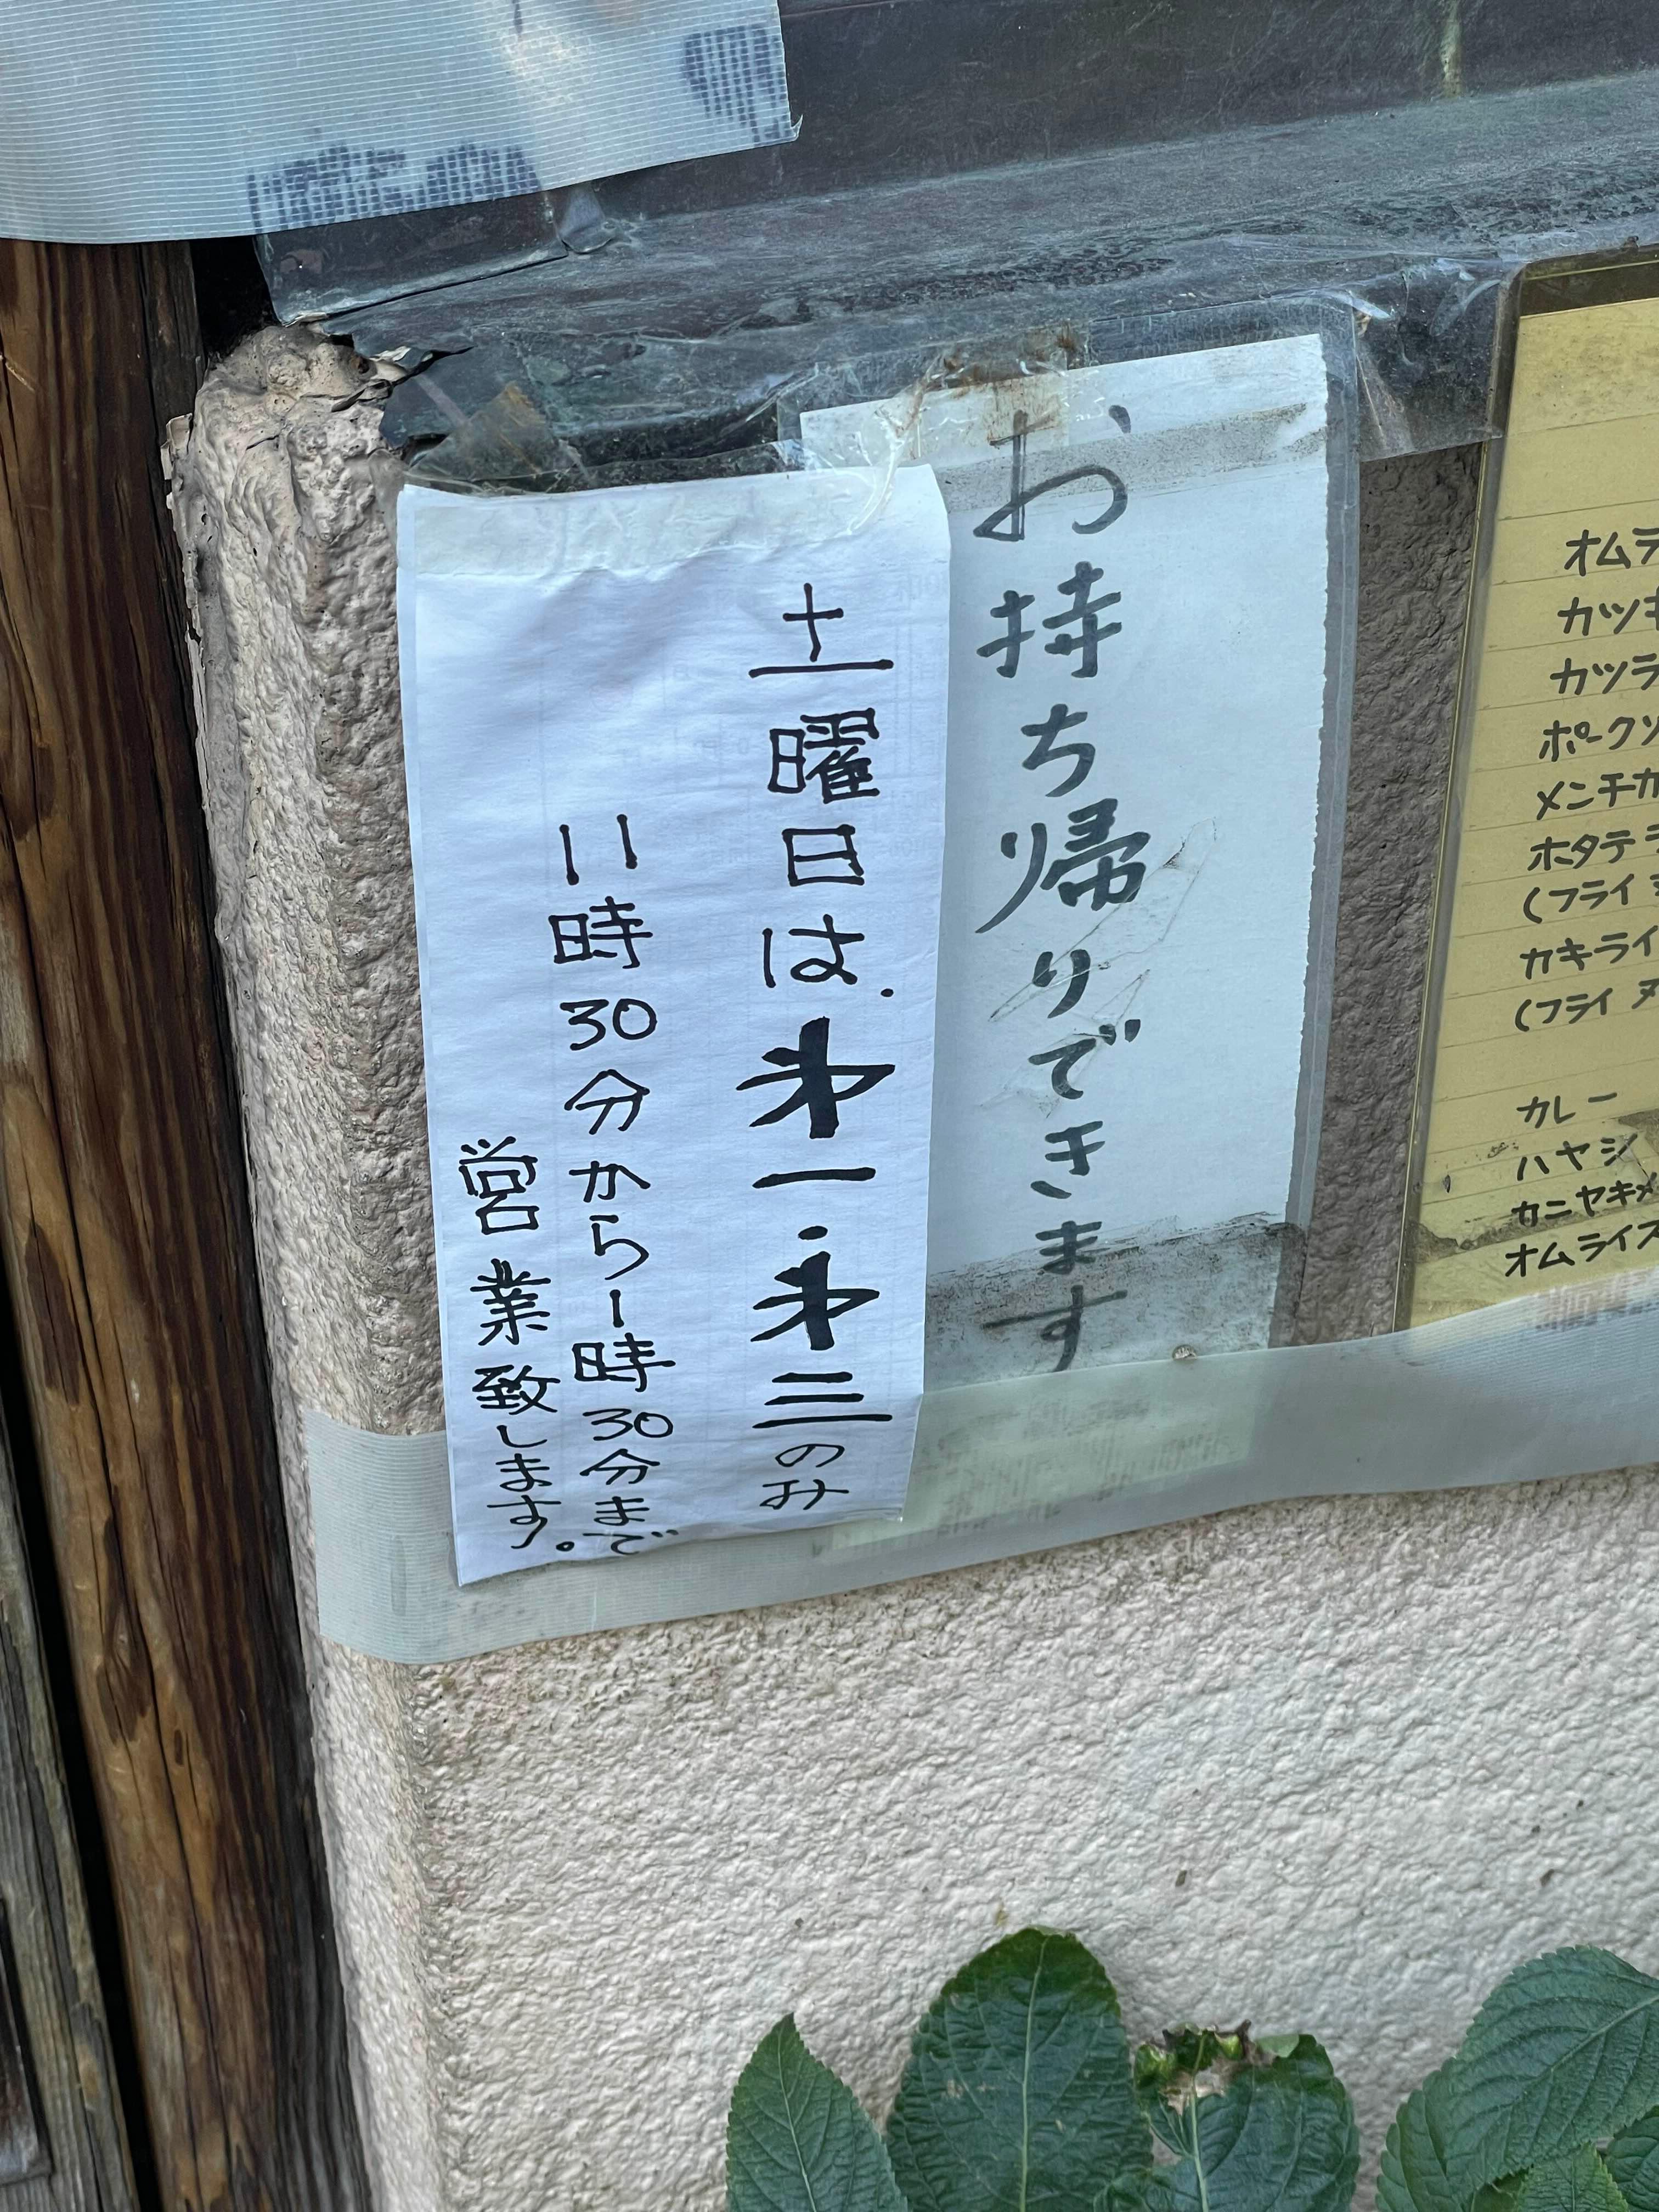 お持ち帰りできます
土曜日は、才一・才三のみ
11時30分から1時30分まで
営業致します。
オムラ
カツ
カツラ
ポークソ
メンチカ
ホタテ
(フライ
カキライ
(フライ
カレー
ハヤシ
カニヤキメ
オムライス